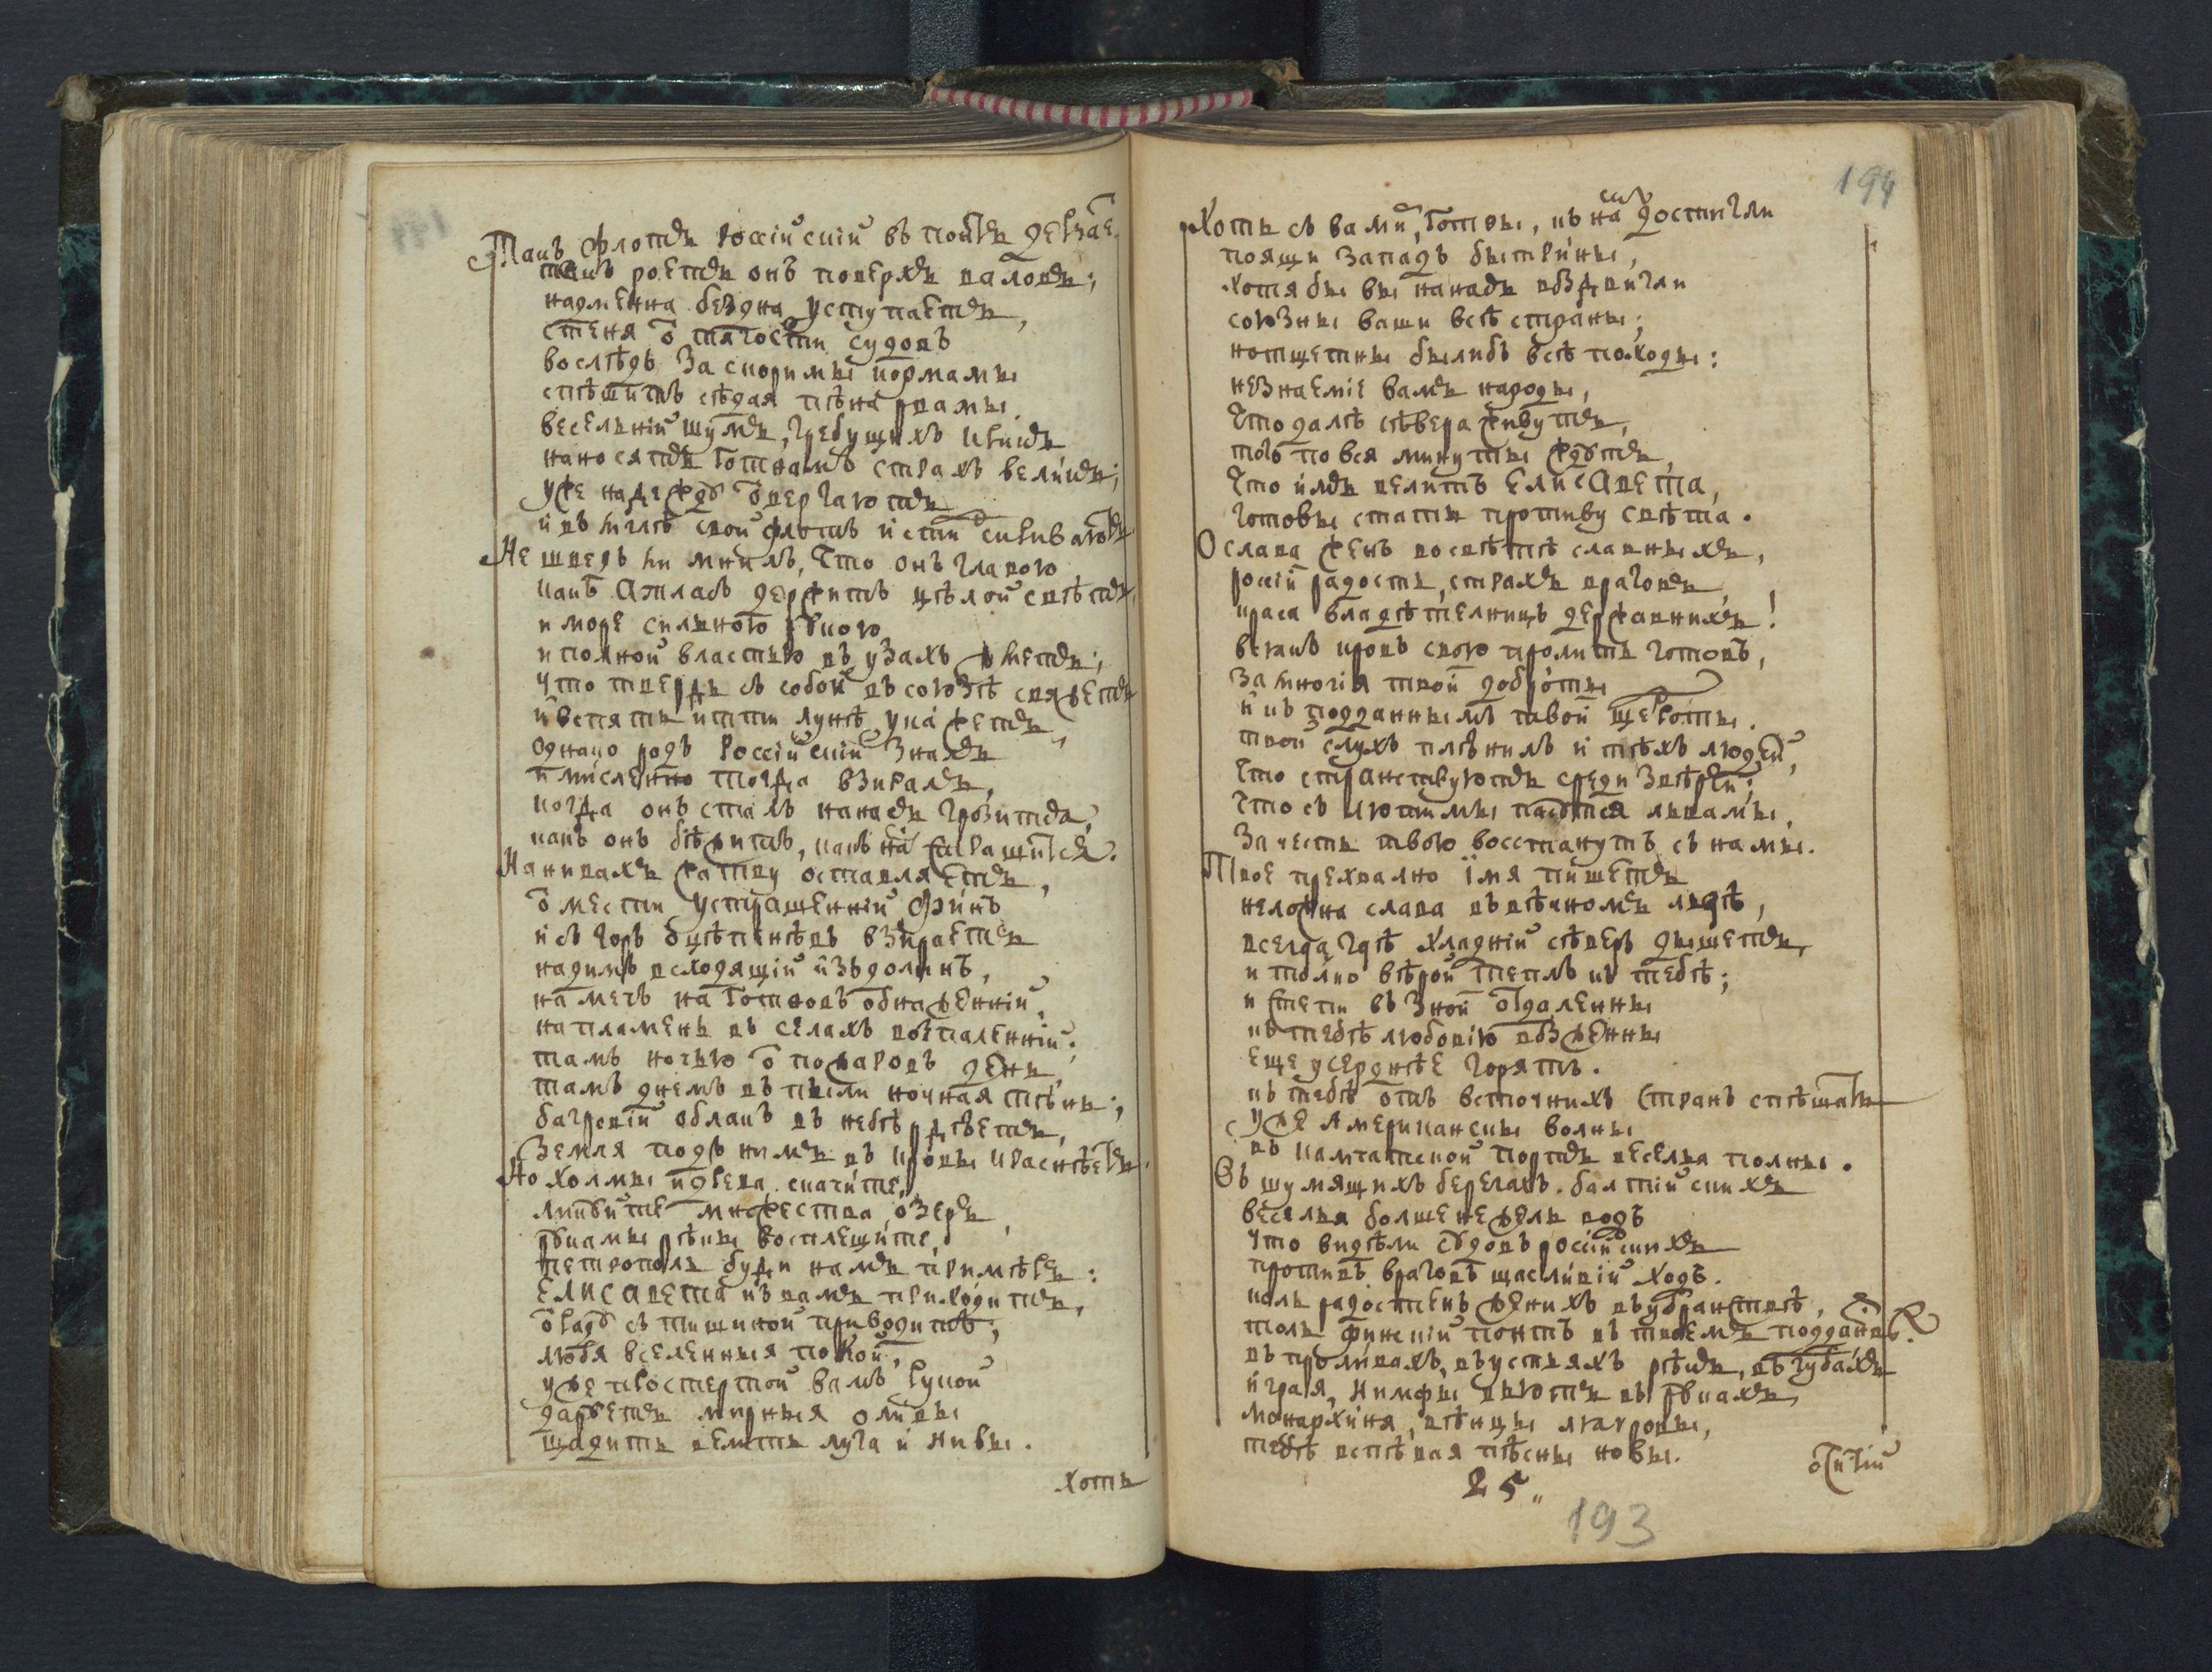 Такъ флотъ Россійскій въ понтъ дерзаетъ
такъ роетъ онъ поверхъ валовъ;
надменна бездна уступаетъ,
стеня о тягости судовъ
вослѣдъ за скорими кормами
спѣшитъ сѣдая пѣна рвами.
весельній шумъ, гребущихъ кликъ
наносятъ Готѳамъ страхъ великъ;
уже надежду отвергаютъ
и въ мглѣ свой флотъ и стид скриваютъ
Не шведъ ли мнилъ, что онъ главою
какъ Атласъ держитъ цѣлой свѣтъ,
и море силною рукою
и полной властью въ узахъ жметъ;
что твердь съ собой въ союзѣ свяжетъ
и вспять итти лунѣ укажетъ,
однако родъ Россійскій зналъ
и мисленно тогда взиралъ,
когда онъ сталъ на насъ грозится,
какъ онъ бѣжитъ, какъ насъ страшится.
На нивахъ жатву оставляетъ,
от мести устрашенній Финъ
и съ горъ оцѣпенѣвъ взираетъ
на димъ всходящій изъ долинъ,
на мечъ на Готѳовъ обнаженній,
на пламень въ селахъ воспаленній;
тамъ ночью от пожаровъ день,
тамъ днемъ въ пыли ночная тѣнь;
багровій облакъ въ небѣ рдѣетъ,
Земля подъ нимъ въ крови краснѣетъ.
Но холмы и древа скачите,
ликуйте множества озеръ,
руками рѣки восплещите,
петрополь буди намъ примѣръ:
Елисавета къ вамъ приходитъ,
отраду съ тишиной приводитъ,
любя вселенныя покой,
уже простертой вамъ рукой
даруетъ мирныя оливы
щадить велитъ луга и нивы.
хотя
194
Хотя съ вами, Готѳы, къ намъ достигли
поящи западъ быстрины,
хотябы вы на насъ воздвигли
союзны ваши всѣ страны;
но тщетны былибъ всѣ походы:
незнаеміе вамъ народы,
Что далѣ сѣвера живутъ,
того по вся минуты ждутъ,
Что имъ велитъ Елисавета,
готовы стать противу свѣта.
О слава женъ во свѣтѣ славныхъ,
россій радость, страхъ враговъ,
краса владѣтелницъ державнихъ!
всякъ кровь свою пролить готовъ,
За многія твои доброты
и къ подданнымъ твоей щедроты.
твой слухъ плѣнилъ и тѣхъ людей,
Что странствуютъ среди звѣрей;
Что съ лютими пасутся львами,
За честь твою возстанутъ съ нами.
Твое прехвално имя пишетъ
неложна слава въ вѣчномъ лдѣ,
всегда гдѣ хладній сѣверъ дышетъ,
и толко вѣрой теплъ къ тебѣ;
и степи въ зной отдаленны
къ тебѣ любовію возженны
еще усерднѣе горятъ.
къ тебѣ отъ всточнихъ странъ спѣшатъ
уже Американски волны
въ камчатской портъ веселья полны.
Въ шумящихъ берегахъ балтійскихъ
веселья болше нежели водъ
Что видѣли судовъ россійскихъ
противъ враговъ щасливій ходъ.
коль радостенъ женихъ въ убранствѣ,
толь финскій понтъ въ твоемъ подданствѣ.
въ проливахъ, въ устьяхъ рѣкъ, въ губахъ
играя, нимфы вьютъ въ рукахъ
монархиня, вѣнцы лавровы,
тебѣ вспѣвая пѣсны новы.
25„
193